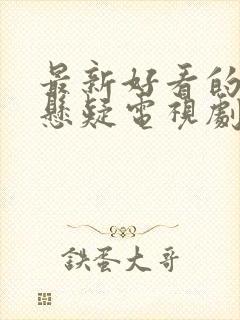 最新好看的
懸疑電視劇
鉄蛋大哥